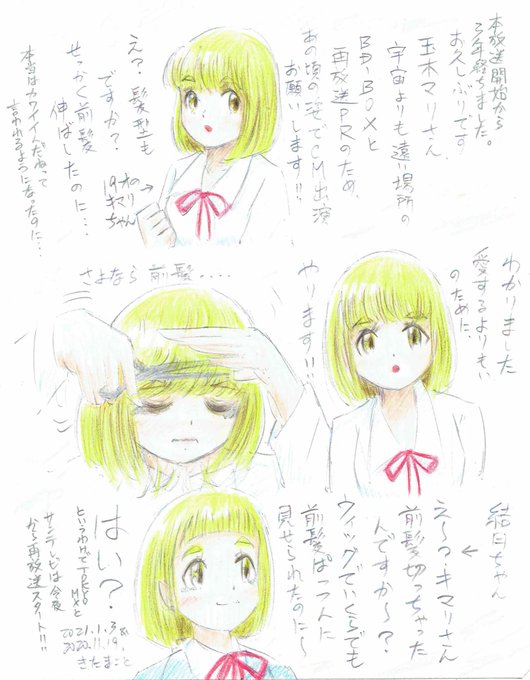 本放送開始から
3年経ちました。
お久しぶりです
玉木マリさん
宇宙よりも遠い場所の
BD-BOXと
再放送PRのため
あの頃の姿でCM出演
お願いします!!
え?髪型も
ですか?
せっかく前髪
伸ばしたのに…
本当はカワイイんだねって
言われるようになったのに…
キマリ
ちゃん
わかりました
愛するよりもい
のために
やります!!
さよなら前髪....
結月ちゃん
え〜?キマリさん
前髪切っちゃった
んですか〜?
ウィッグでいくらでも
前髪ぱっつんに
見せられたのに〜
はい?
というわけで
MXと
サンテレビは今夜
から再放送スタート!!
2021.1.3
2020.11.19
きたまこと